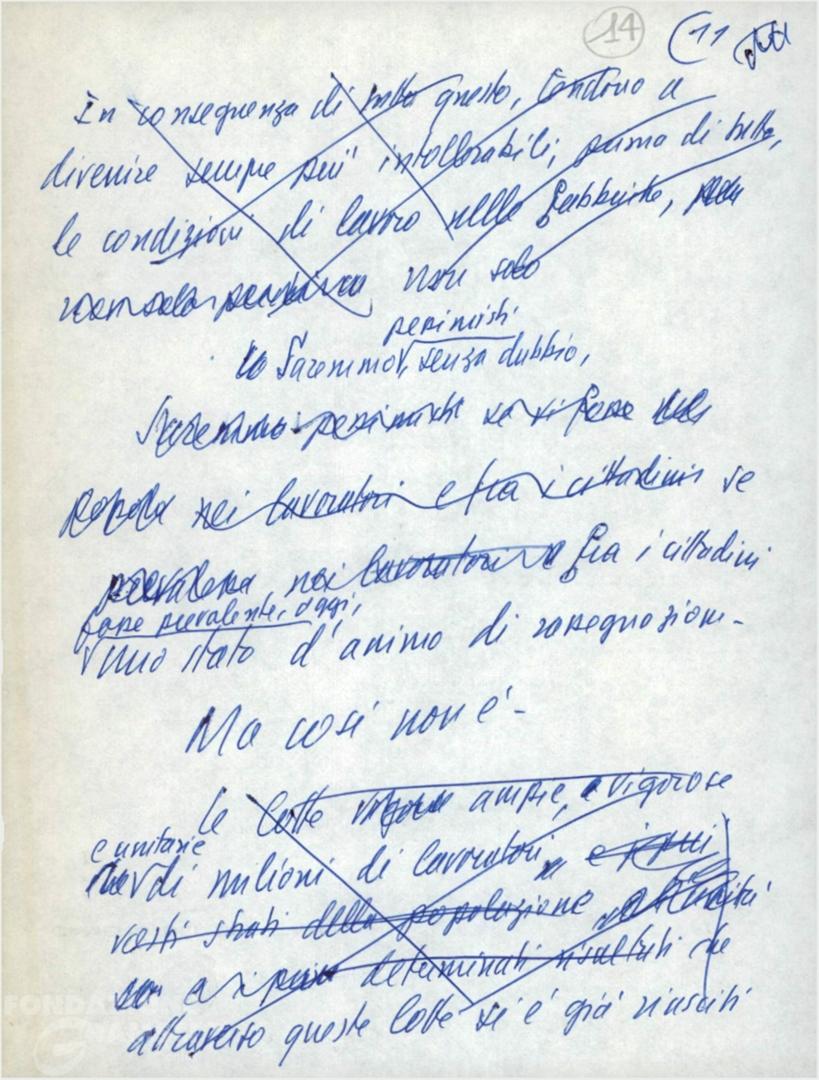 14 (11
In conseguenza di tutto questo, tendono a
divenire sempre più intollerabili, prima di tutto,
le condizioni di lavoro nelle fabbriche,
non solo non solo
pessimisti
Saremmo, senza dubbio,
Saremmo pessimisti se si fosse
nei lavoratori e fra i cittadini se
nei lavoratori e fra i cittadini
fosse prevalente, oggi,
uno stato d'animo di rassegnazione -
Ma così non è -
Le lotte vigorose ampie, e vigorose
e unitarie
di milioni di lavoratori,
vasti strati della popolazione
determinati risultati che
attraverso queste lotte si è già riusciti
FONDAZIONE